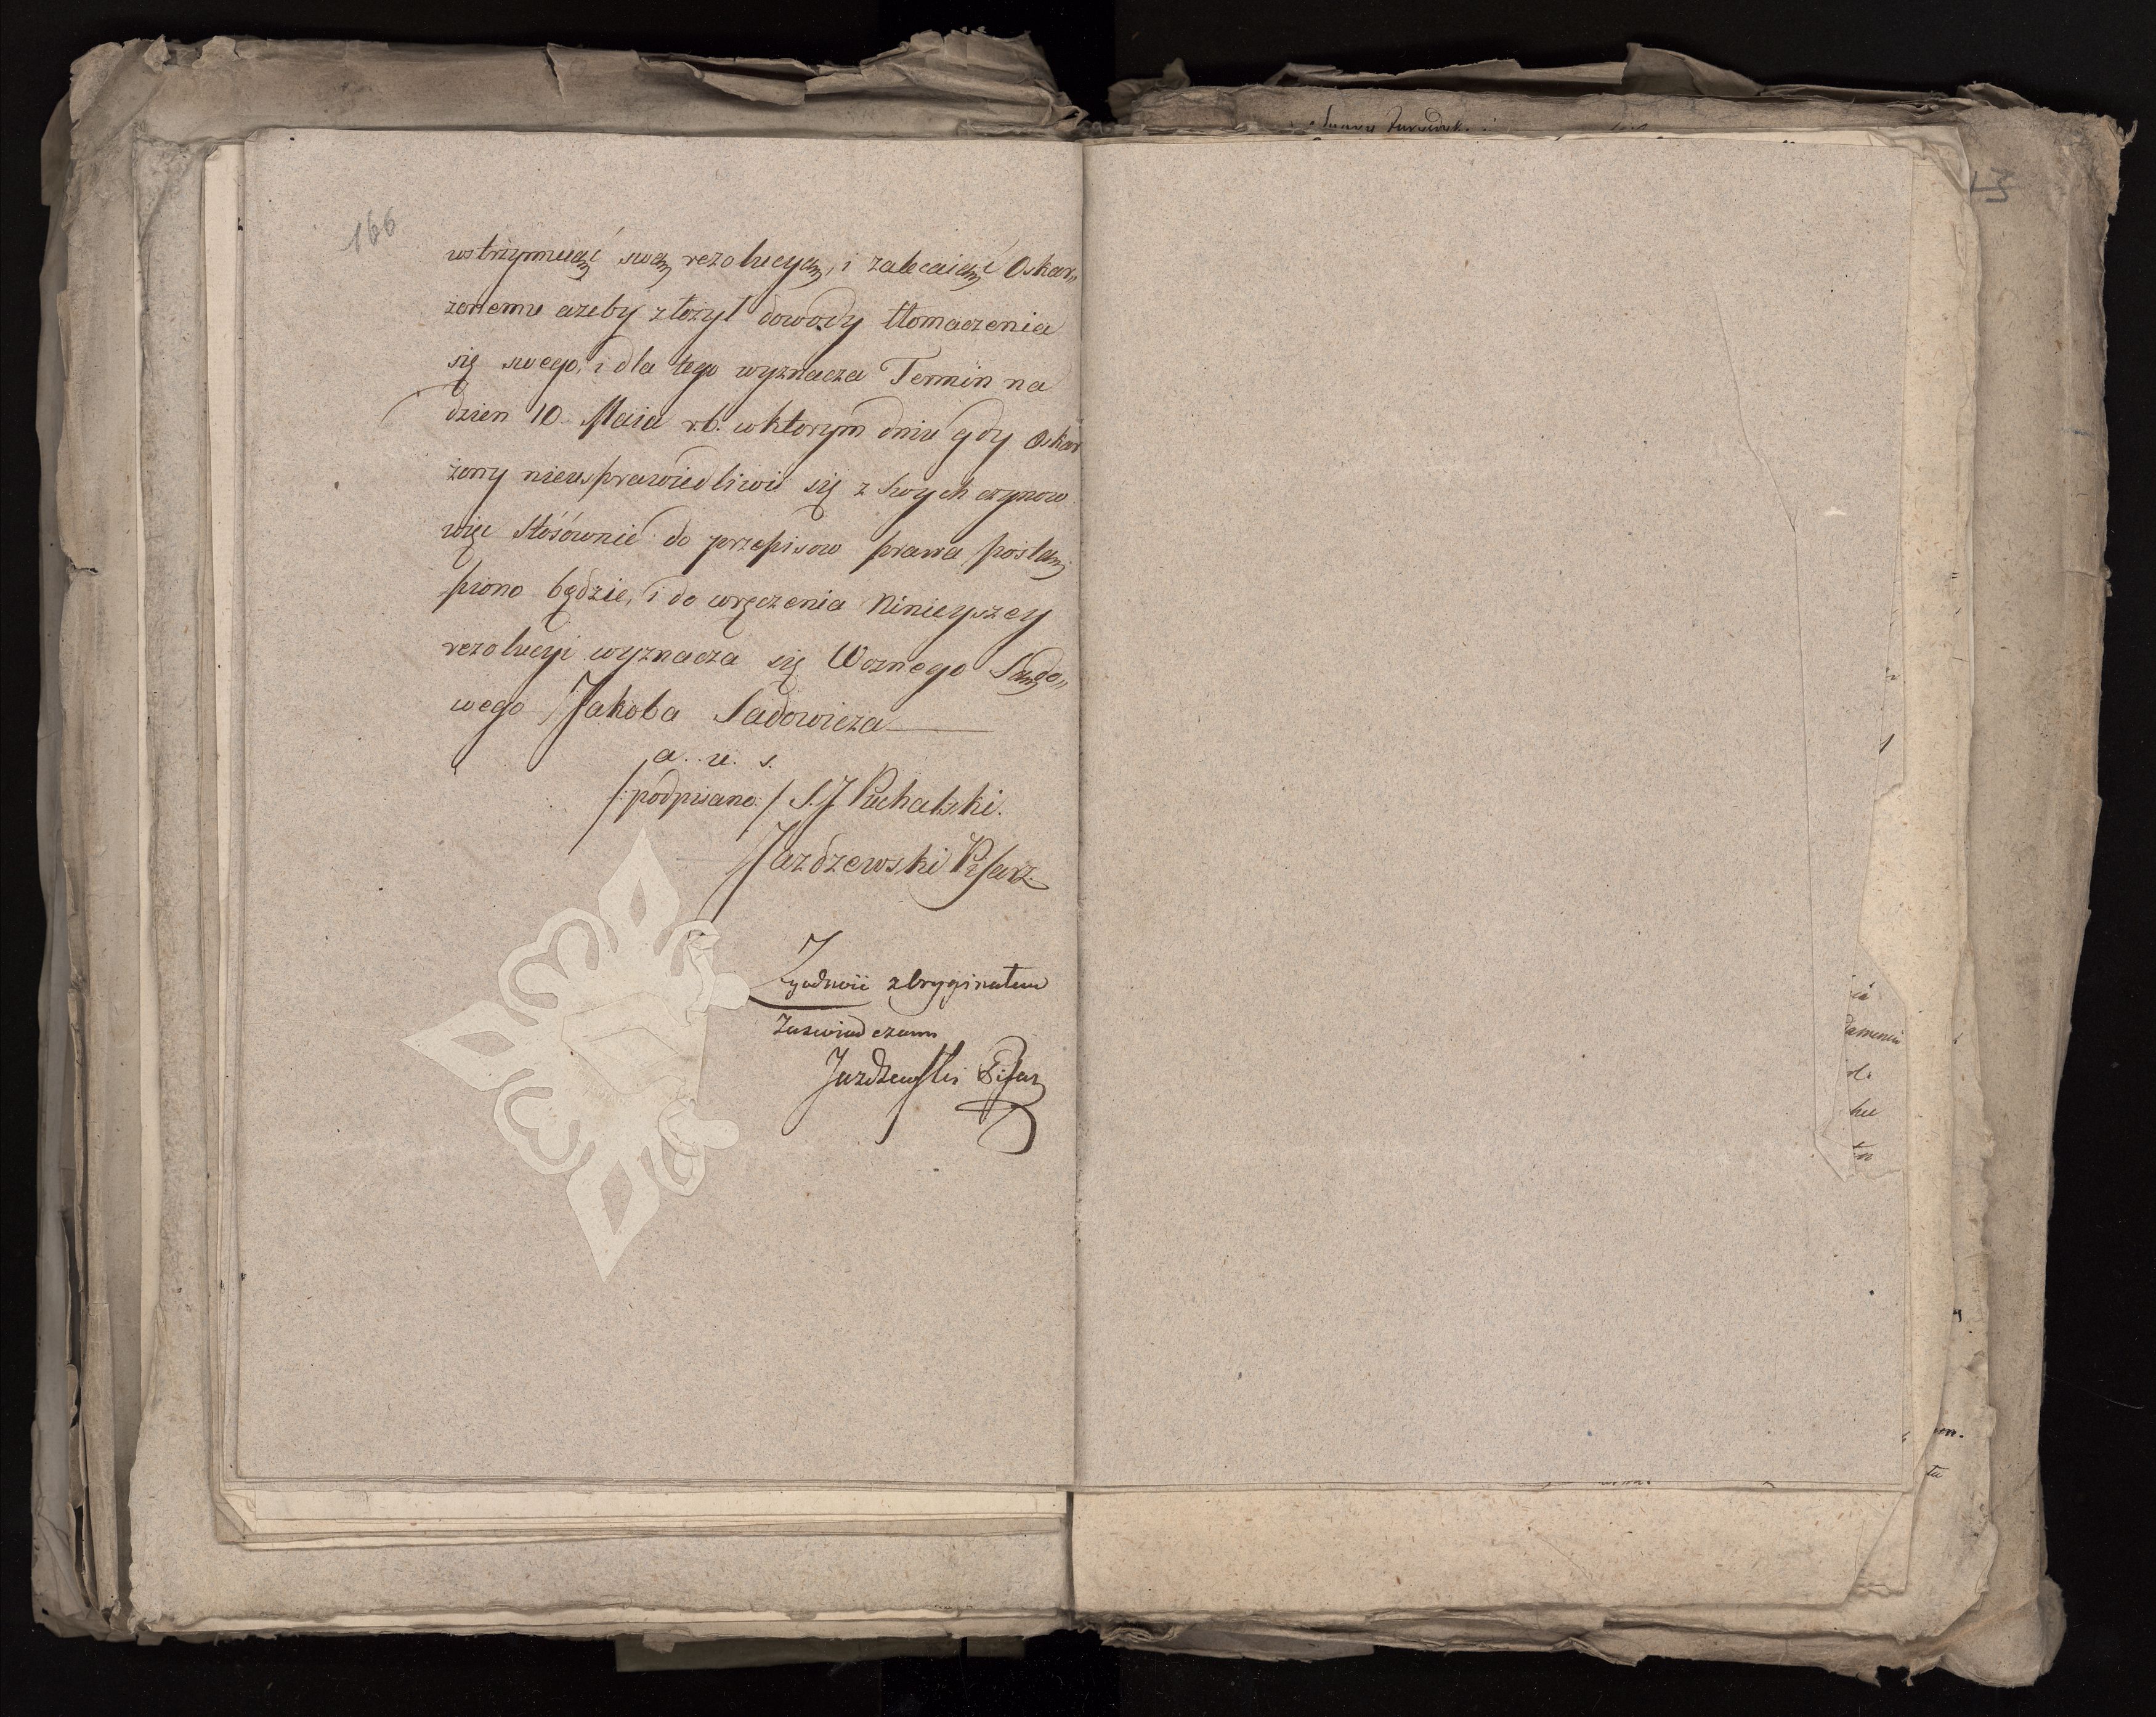 166
wstrzymuiąć swą rezolucyą, i zalecaiąć Oskar„
żonemu ażeby złożył dowody tłomaczenia
się swego, i dla tego wyznacza Termin na
dzien 10. Maia r.b. w ktorym dniu gdy Oskar
żony nieusprawiedliwi się z swych czynow
więc stósównie do przepisow prawa postą„
piono będzie, i do wręczenia Ninieyszey
rezolucyi wyznacza się Woznego Sądo„
wego Jakoba Sadowicza
a. u. s.
/: podpisano :/ S. J Puchalski.
Jazdzewski Pisarz.
Zgodność z Oryginałem
Zaswiadczam
Jazdzewski Pisarz